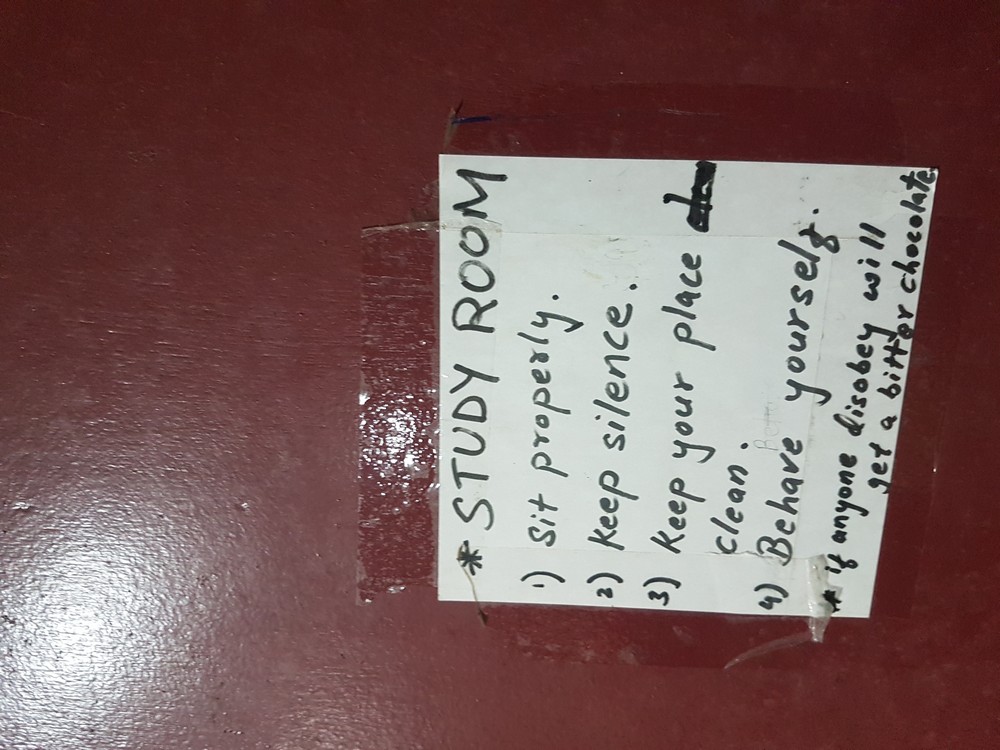 * STUDY ROOM
1) Sit properly.
2) Keep silence.
3) Keep your place
clean.
4) Behave yourself.
* if anyone disobey will
get a bitter chocolate